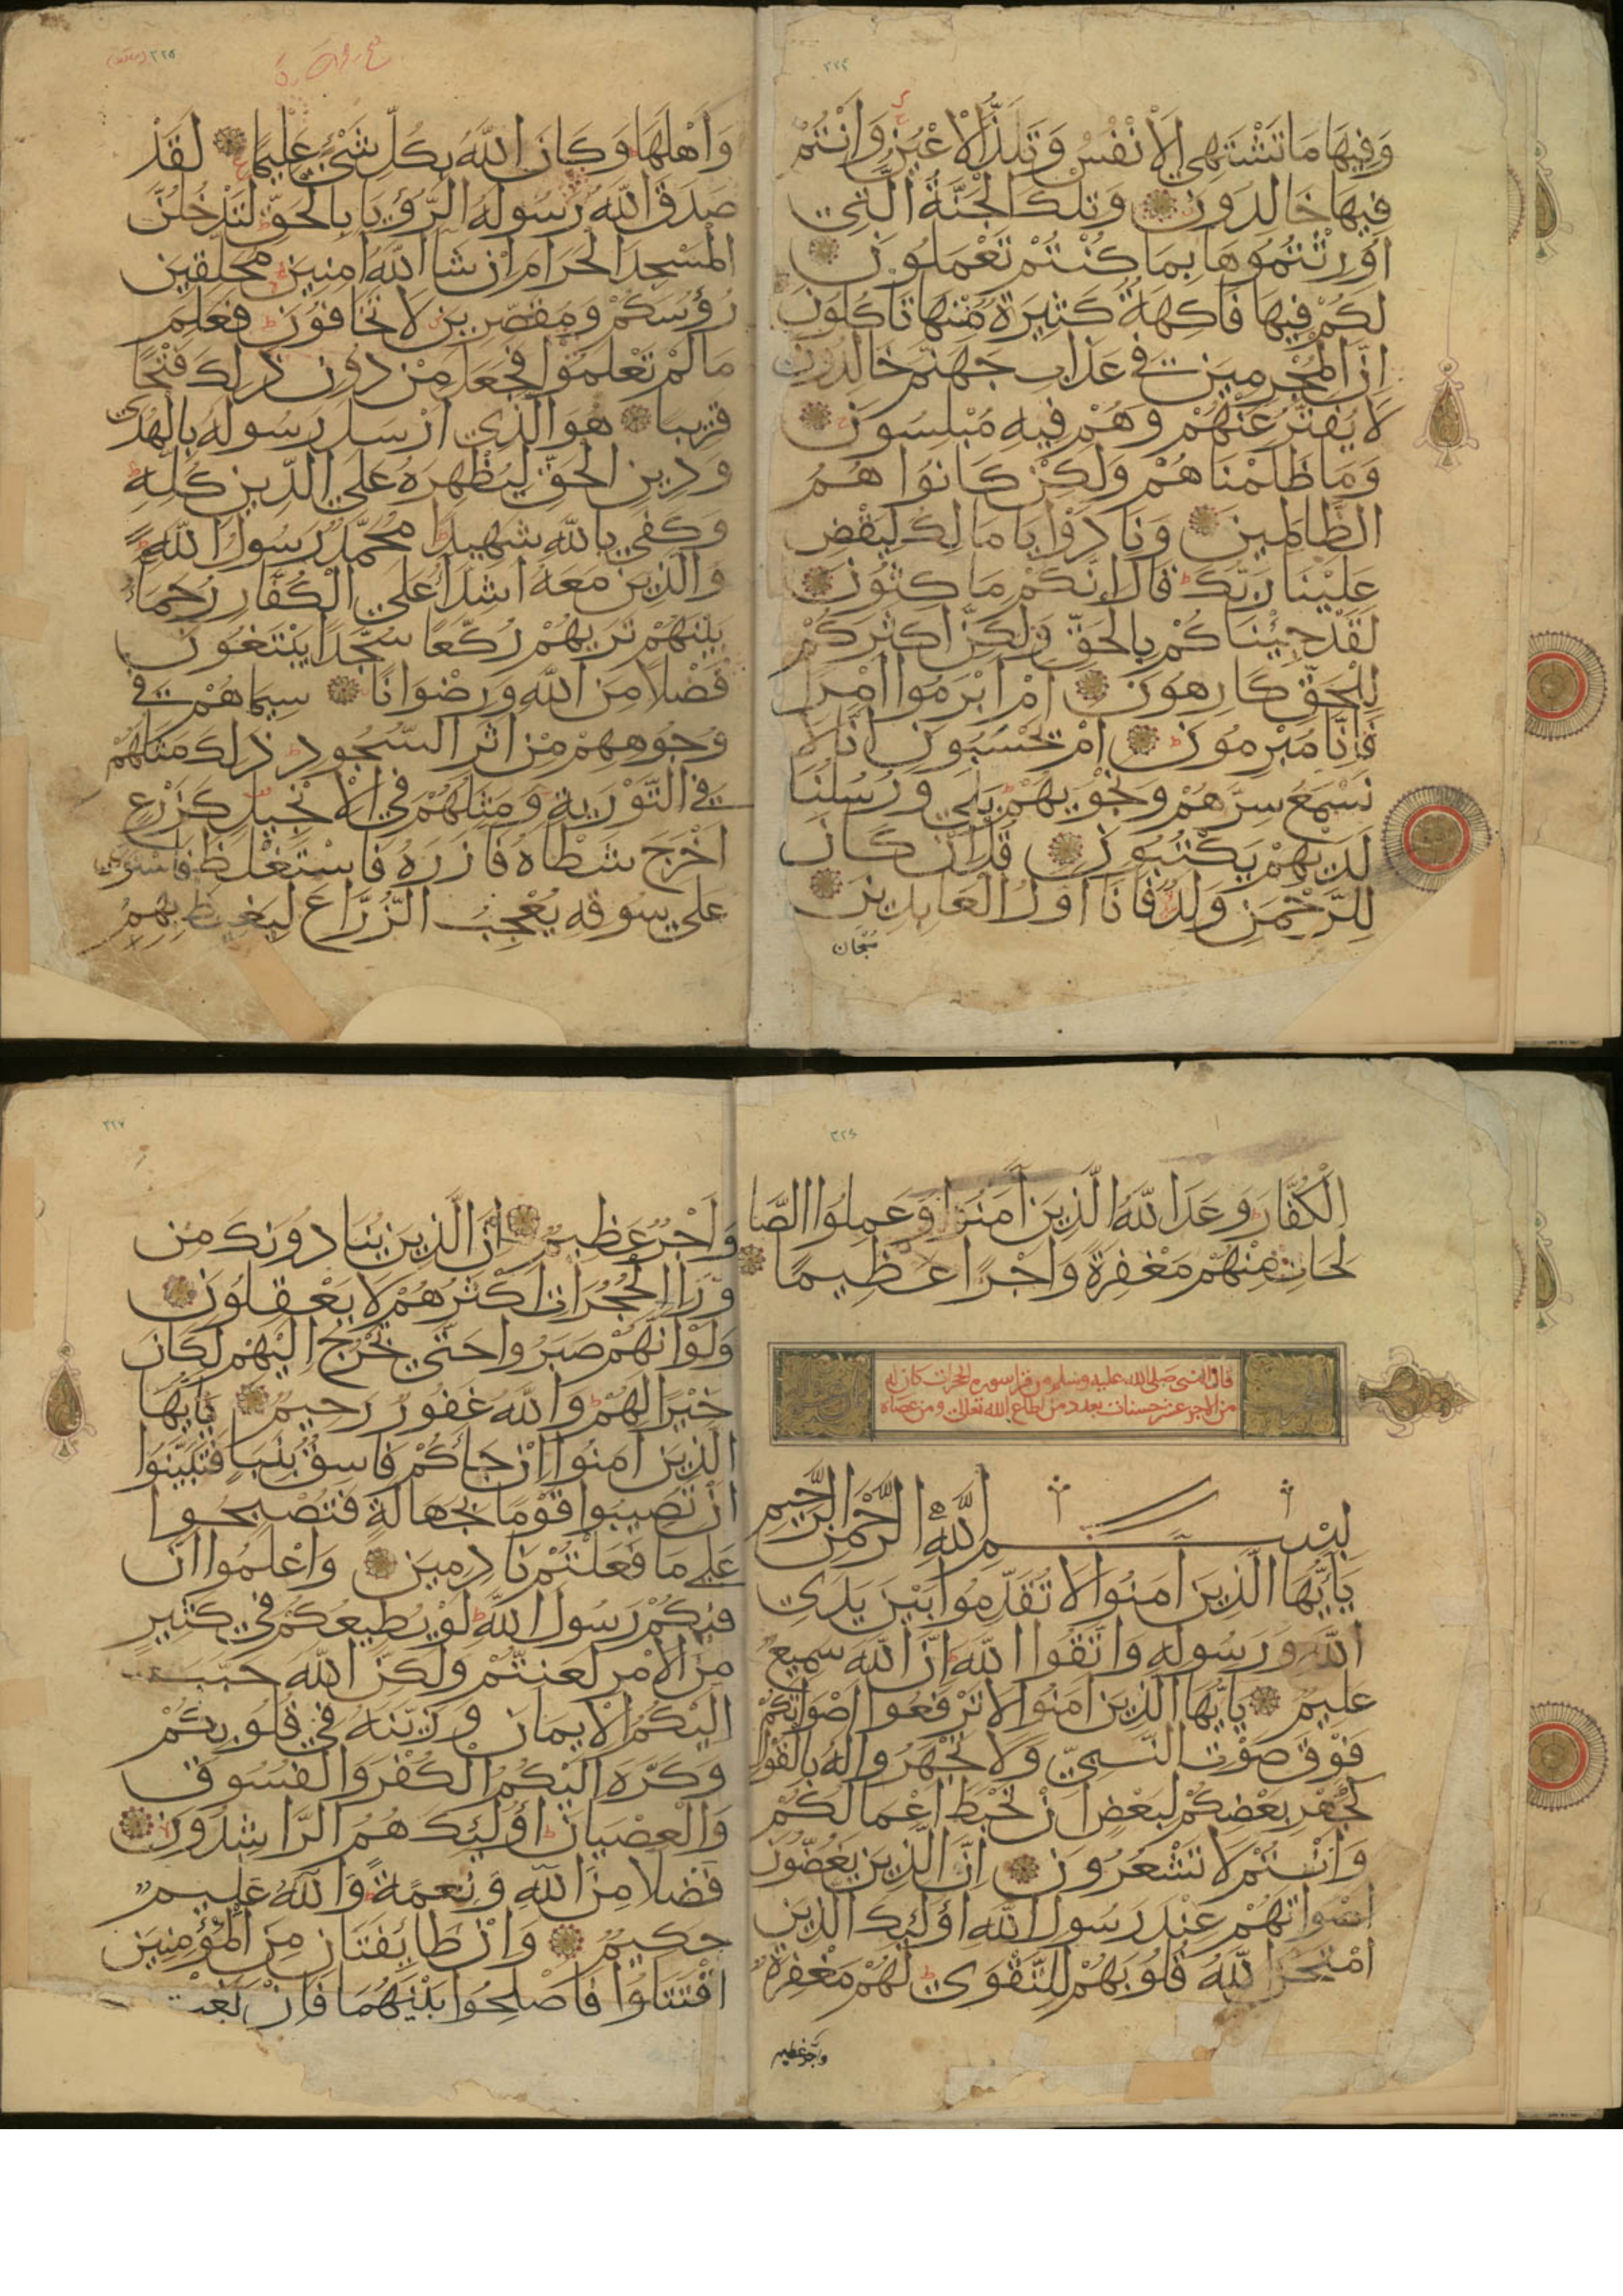 ٢٢٤
وَفِيهَا مَا تَشْتَهِي الْأَنْفُسُ وَتَلَذُّ الْأَعْيُنُ وَأَنْتُمْ
فِيهَا خَالِدُونَ وَتِلْكَ الْجَنَّةُ الَّتِي
أُورِثْتُمُوهَا بِمَا كُنْتُمْ تَعْمَلُونَ
لَكُمْ فِيهَا فَاكِهَةٌ كَثِيرَةٌ مِنْهَا تَأْكُلُونَ
إِنَّ الْمُجْرِمِينَ فِي عَذَابِ جَهَنَّمَ خَالِدُونَ
لَا يُفَتَّرُ عَنْهُمْ وَهُمْ فِيهِ مُبْلِسُونَ
وَمَا ظَلَمْنَاهُمْ وَلَكِنْ كَانُوا هُمُ
الظَّالِمِينَ وَنَادَوْا يَا مَالِكُ لِيَقْضِ
عَلَيْنَا رَبُّكَ قَالَ إِنَّكُمْ مَاكِثُونَ
لَقَدْ جِئْنَاكُمْ بِالْحَقِّ وَلَكِنَّ أَكْثَرَكُمْ
لِلْحَقِّ كَارِهُونَ أَمْ أَبْرَمُوا أَمْرًا
فَإِنَّا مُبْرِمُونَ أَمْ يَحْسَبُونَ أَنَّا لَا
نَسْمَعُ سِرَّهُمْ وَنَجْوَيهُمْ بَلَى وَرُسُلُنَا
لَدَيْهِمْ يَكْتُبُونَ قُلْ إِنْ كَانَ
لِلرَّحْمَنِ وَلَدٌ فَأَنَا أَوَّلُ الْعَابِدِينَ
سُبْحَان
٢٢٥
وَأَهْلَهَا وَكَانَ اللَّهُ بِكُلِّ شَيْءٍ عَلِيمًا لَقَدْ
صَدَقَ اللَّهُ رَسُولَهُ الرُّؤْيَا بِالْحَقِّ لَتَدْخُلُنَّ
الْمَسْجِدَ الْحَرَامَ إِنْ شَا اللَّهُ آمِنِينَ مُحَلِّقِينَ
رُؤُسَكُمْ وَمُقَصِّرِينَ لَا تَخَافُونَ فَعَلِمَ
مَا لَمْ تَعْلَمُوا فَجَعَلَ مِنْ دُونِ ذَلِكَ فَتْحًا
قَرِيبًا هُوَ الَّذِي أَرْسَلَ رَسُولَهُ بِالْهُدَى
وَدِينِ الْحَقِّ لِيُظْهِرَهُ عَلَى الدِّينِ كُلِّهِ
وَكَفَى بِاللَّهِ شَهِيدًا مُحَمَّدٌ رَسُولُ اللَّهِ
وَالَّذِينَ مَعَهُ أَشِدَّاءُ عَلَى الْكُفَّارِ رُحَمَاءُ
بَيْنَهُمْ تَرَيهُمْ رُكَّعًا سُجَّدًا يَبْتَغُونَ
فَضْلًا مِنَ اللَّهِ وَرِضْوَانًا سِيمَاهُمْ فِي
وُجُوهِهِمْ مِنْ أَثَرِ السُّجُودِ ذَلِكَ مَثَلُهُمْ
فِي التَّوْرَيةِ وَمَثَلُهُمْ فِي الْإِنْجِيلِ كَزَرْعٍ
أَخْرَجَ شَطْأَهُ فَآزَرَهُ فَاسْتَغْلَظَ فَاسْتَوَى
عَلَى سُوقِهِ يُعْجِبُ الزُّرَّاعَ لِيَغِيظَ بِهِمُ
٢٢٦
الْكُفَّارَ وَعَدَ اللَّهُ الَّذِينَ آمَنُوا وَعَمِلُوا الصَّا
لِحَاتِ مِنْهُمْ مَغْفِرَةً وَأَجْرًا عَظِيمًا
قال النبي صلى الله عليه وسلم من قرا سورة الحجرات كان له
من الاجر عشر حسنات بعدد من اطاع الله تعالى ومن عصاه
بِسْمِ اللَّهِ الرَّحْمَنِ الرَّحِيمِ
يَا أَيُّهَا الَّذِينَ آمَنُوا لَا تُقَدِّمُوا بَيْنَ يَدَيِ
اللَّهِ وَرَسُولِهِ وَاتَّقُوا اللَّهَ إِنَّ اللَّهَ سَمِيعٌ
عَلِيمٌ يَا أَيُّهَا الَّذِينَ آمَنُوا لَا تَرْفَعُوا أَصْوَاتَكُمْ
فَوْقَ صَوْتِ النَّبِيِّ وَلَا تَجْهَرُوا لَهُ بِالْقَوْلِ
كَجَهْرِ بَعْضِكُمْ لِبَعْضٍ أَنْ تَحْبَطَ أَعْمَالُكُمْ
وَأَنْتُمْ لَا تَشْعُرُونَ إِنَّ الَّذِينَ يَغُضُّونَ
أَصْوَاتَهُمْ عِنْدَ رَسُولِ اللَّهِ أُولَئِكَ الَّذِينَ
امْتَحَنَ اللَّهُ قُلُوبَهُمْ لِلتَّقْوَى لَهُمْ مَغْفِرَةٌ
واجر عظيم
٢٢٧
وَأَجْرٌ عَظِيمٌ إِنَّ الَّذِينَ يُنَادُونَكَ مِنْ
وَرَاءِ الْحُجُرَاتِ أَكْثَرُهُمْ لَا يَعْقِلُونَ
وَلَوْ أَنَّهُمْ صَبَرُوا حَتَّى تَخْرُجَ إِلَيْهِمْ لَكَانَ
خَيْرًا لَهُمْ وَاللَّهُ غَفُورٌ رَحِيمٌ يَا أَيُّهَا
الَّذِينَ آمَنُوا إِنْ جَاءَكُمْ فَاسِقٌ بِنَبَإٍ فَتَبَيَّنُوا
أَنْ تُصِيبُوا قَوْمًا بِجَهَالَةٍ فَتُصْبِحُوا
عَلَى مَا فَعَلْتُمْ نَادِمِينَ وَاعْلَمُوا أَنَّ
فِيكُمْ رَسُولَ اللَّهِ لَوْ يُطِيعُكُمْ فِي كَثِيرٍ
مِنَ الْأَمْرِ لَعَنِتُّمْ وَلَكِنَّ اللَّهَ حَبَّبَ
إِلَيْكُمُ الْإِيمَانَ وَزَيَّنَهُ فِي قُلُوبِكُمْ
وَكَرَّهَ إِلَيْكُمُ الْكُفْرَ وَالْفُسُوقَ
وَالْعِصْيَانَ أُولَئِكَ هُمُ الرَّاشِدُونَ
فَضْلًا مِنَ اللَّهِ وَنِعْمَةً وَاللَّهُ عَلِيمٌ
حَكِيمٌ وَإِنْ طَائِفَتَانِ مِنَ الْمُؤْمِنِينَ
اقْتَتَلُوا فَأَصْلِحُوا بَيْنَهُمَا فَإِنْ بَغَتْ